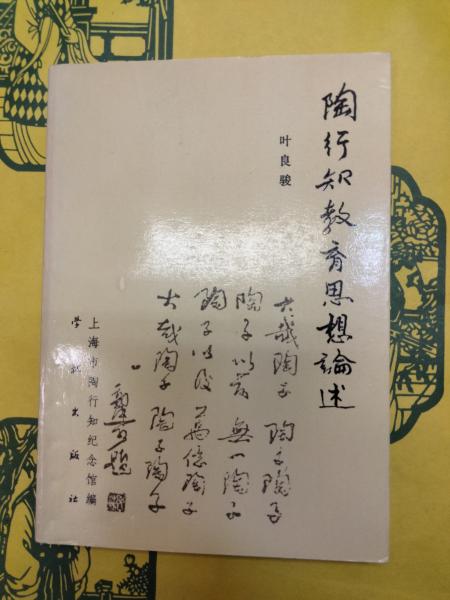 陶行知教育思想論述
叶良骏
大哉陶子 陶子陶子
陶子以前 無一陶子
陶子以後 萬億陶子
大哉陶子 陶子陶子
上海市陶行知纪念馆编
学林出版社